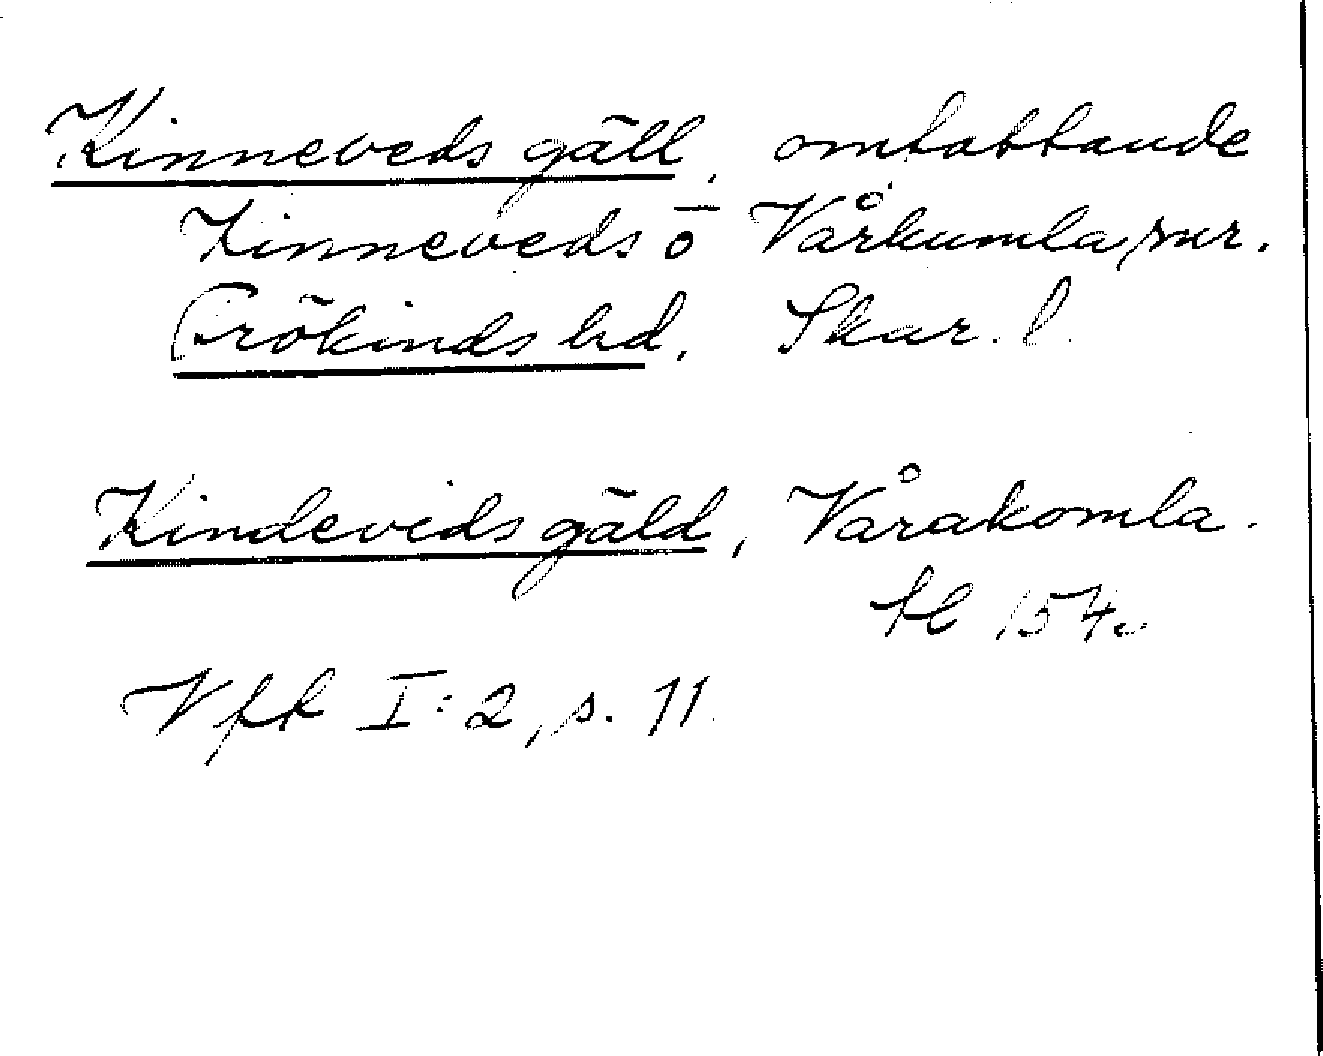 Kinneveds gäll, omfattande
Kinneveds o Vårkumla snr.
Frökinds hd, Skar. l.
Kindevids gäld, Vårakomla.
fl 154.
Vfk I:2, s. 11.